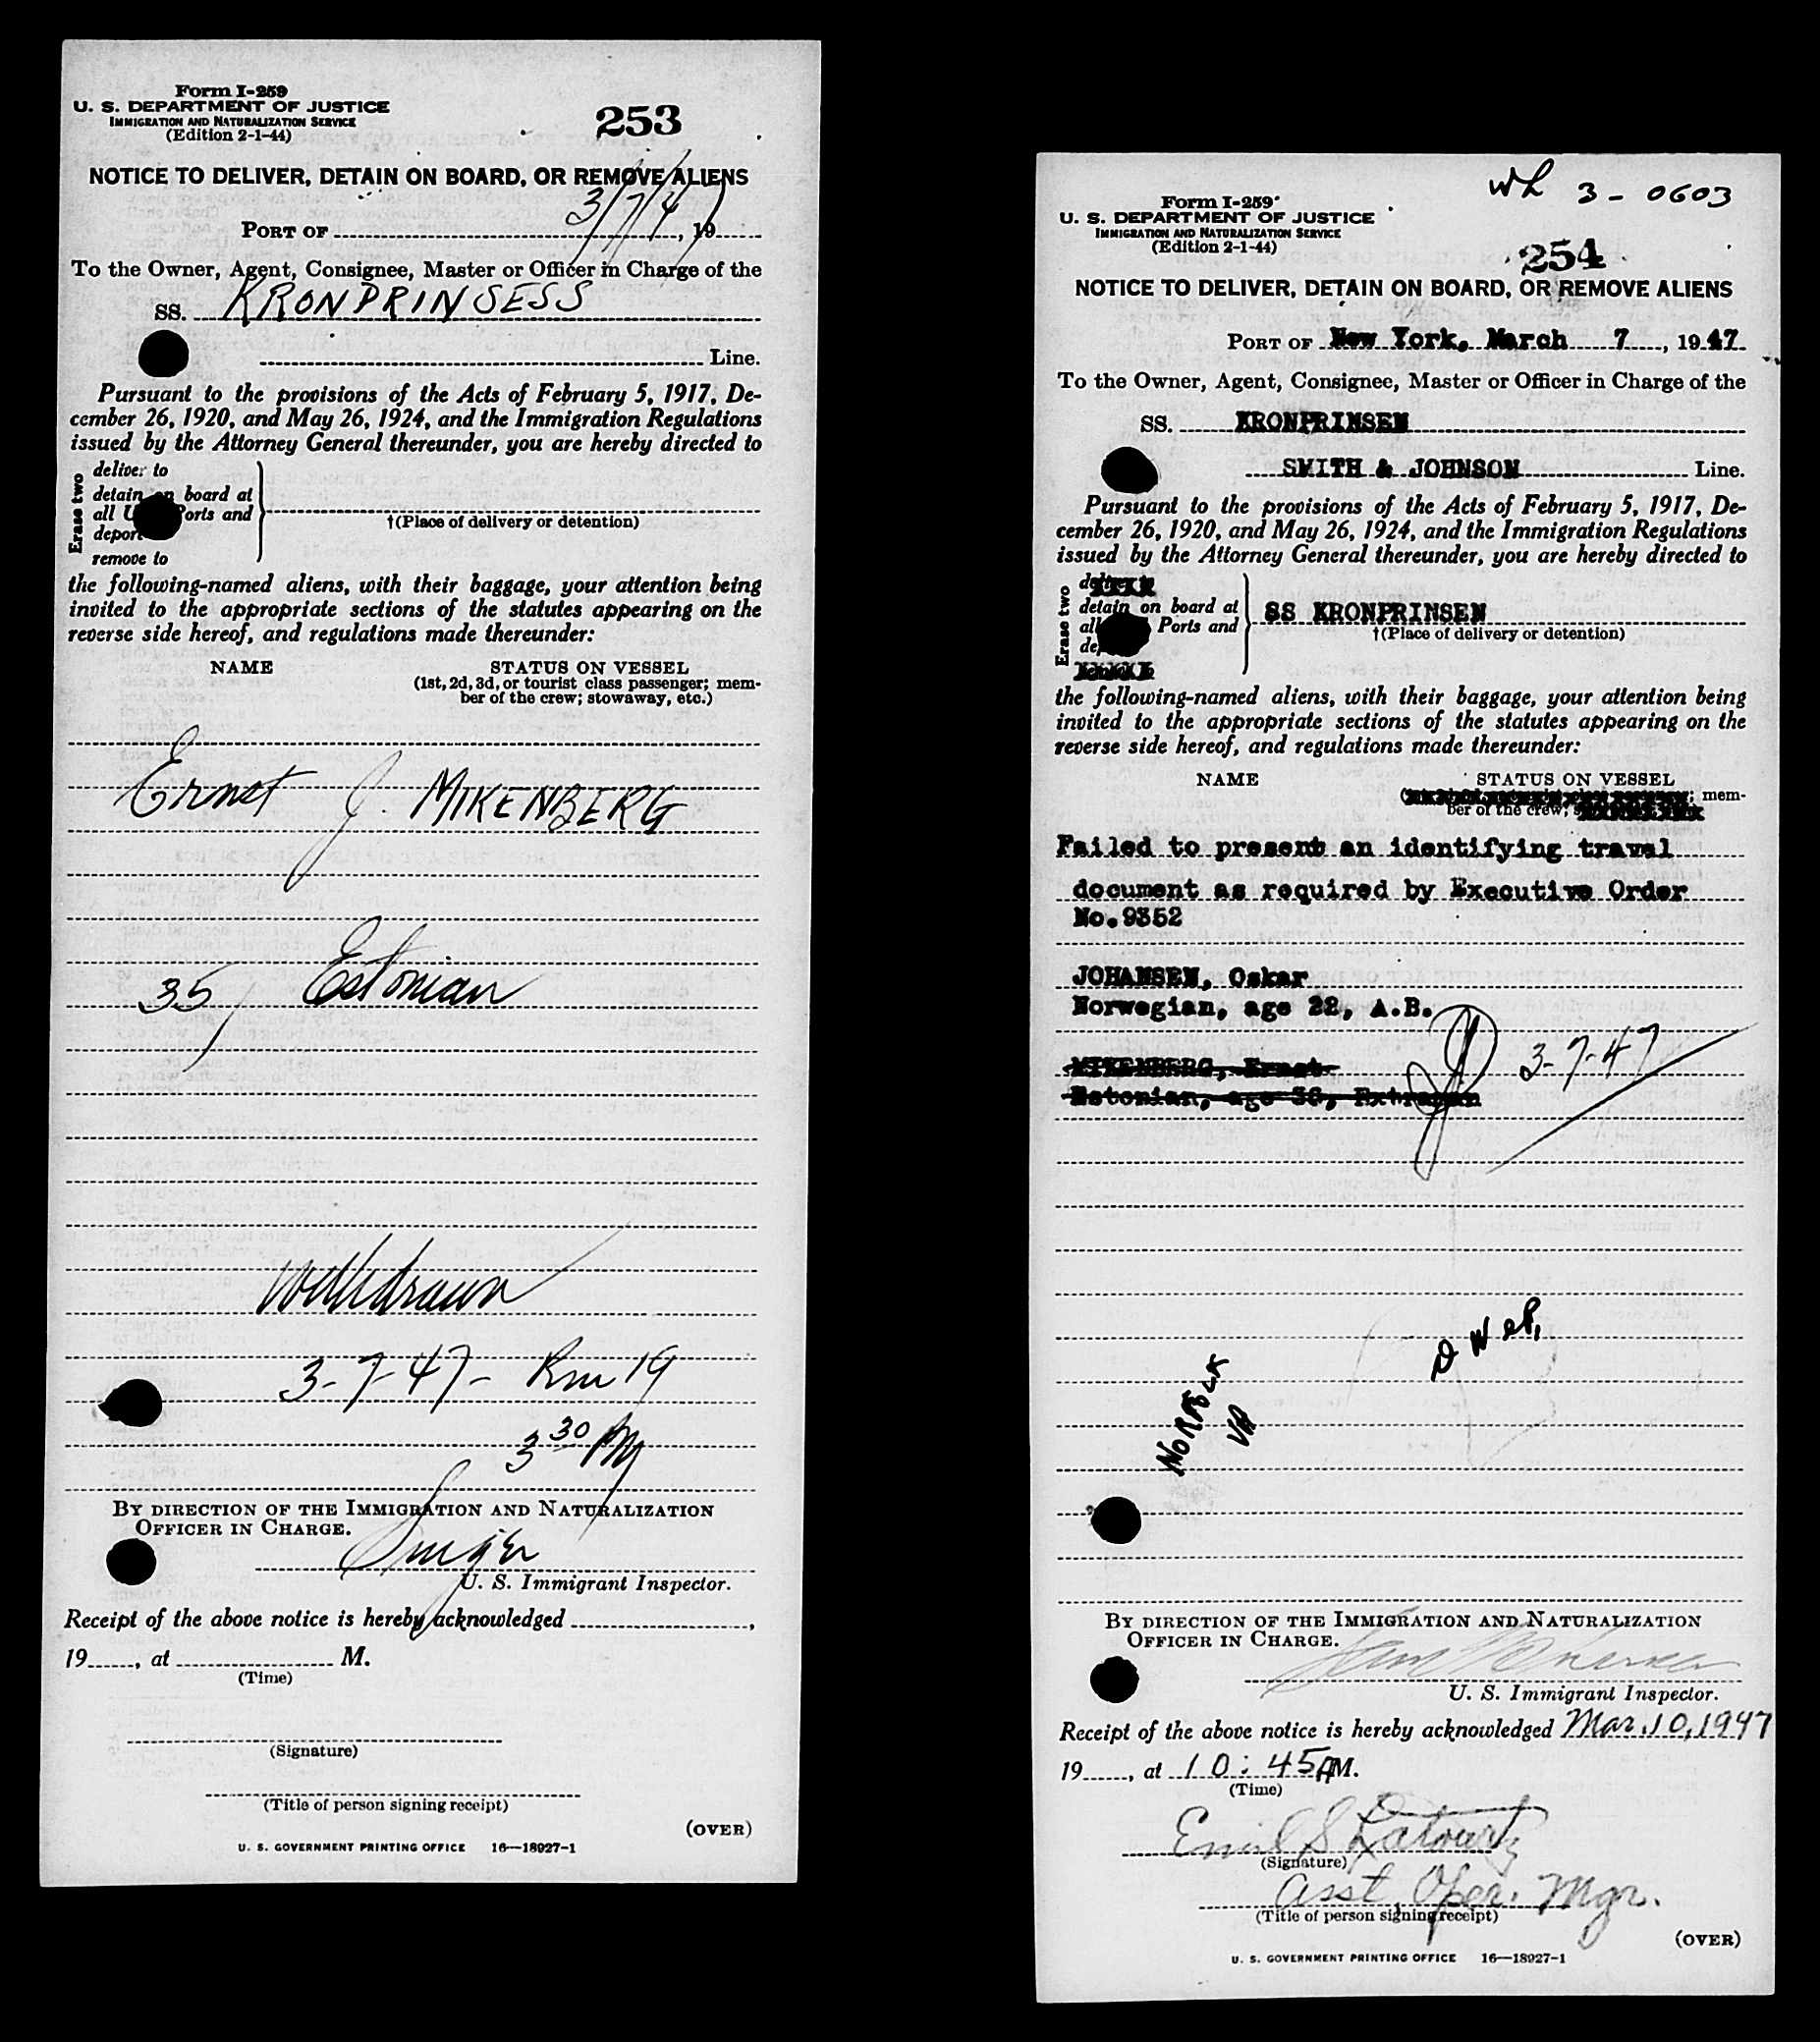 Form I-259
U. S. DEPARTMENT OF JUSTICE
IMMIGRATION AND NATURALIZATION SERVICE
(Edition 2-1-44)
253
NOTICE TO DELIVER, DETAIN ON BOARD, OR REMOVE ALIENS
PORT OF 3/7/47, 19
To the Owner, Agent, Consignee, Master or Officer in Charge of the
SS. KRONPRINSESS
Line.
Pursuant to the provisions of the Acts of February 5, 1917, De-
cember 26, 1920, and May 26, 1924, and the Immigration Regulations
issued by the Attorney General thereunder, you are hereby directed to
Erase two
deliver to
detain on board at
all U Ports and
deport
remove to
†(Place of delivery or detention)
the following-named aliens, with their baggage, your attention being
invited to the appropriate sections of the statutes appearing on the
reverse side hereof, and regulations made thereunder:
NAME STATUS ON VESSEL
(1st, 2d, 3d, or tourist class passenger; mem-
ber of the crew; stowaway, etc.)
Ernst J. MIKENBERG
35, Estonian
Withdrawn
3-7-47- Rm 19
3 30 PM
BY DIRECTION OF THE IMMIGRATION AND NATURALIZATION
OFFICER IN CHARGE.
U. S. Immigrant Inspector.
Receipt of the above notice is hereby acknowledged ,
19 , at M.
(Time)
(Signature)
(Title of person signing receipt)
(OVER)
U. S. GOVERNMENT PRINTING OFFICE 16—18927-1
Wh 3-0603
Form I-259
U. S. DEPARTMENT OF JUSTICE
IMMIGRATION AND NATURALIZATION SERVICE
(Edition 2-1-44)
254
NOTICE TO DELIVER, DETAIN ON BOARD, OR REMOVE ALIENS
PORT OF New York, March 7, 1947
To the Owner, Agent, Consignee, Master or Officer in Charge of the
SS. KRONPRINSEN
SMITH & JOHNSON Line.
Pursuant to the provisions of the Acts of February 5, 1917, De-
cember 26, 1920, and May 26, 1924, and the Immigration Regulations
issued by the Attorney General thereunder, you are hereby directed to
Erase two
detain on board at
all Ports and
SS KRONPRINSEN
†(Place of delivery or detention)
the following-named aliens, with their baggage, your attention being
invited to the appropriate sections of the statutes appearing on the
reverse side hereof, and regulations made thereunder:
NAME STATUS ON VESSEL
mem-
ber of the crew;
Failed to present an identifying travel
document as required by Executive Order
No.9352
JOHANSEN, Oskar
Norwegian, age 22, A.B.
MIKENBERG, Ernst
Estonian, age 36, Extraman
3-7-47
NORFOLK
VA
BY DIRECTION OF THE IMMIGRATION AND NATURALIZATION
OFFICER IN CHARGE.
U. S. Immigrant Inspector.
Receipt of the above notice is hereby acknowledged Mar. 10, 1947
19 , at 10:45 AM.
(Time)
Emil S.
(Signature)
Asst. Oper. Mgr.
(Title of person signing receipt)
(OVER)
U. S. GOVERNMENT PRINTING OFFICE 16—18927-1